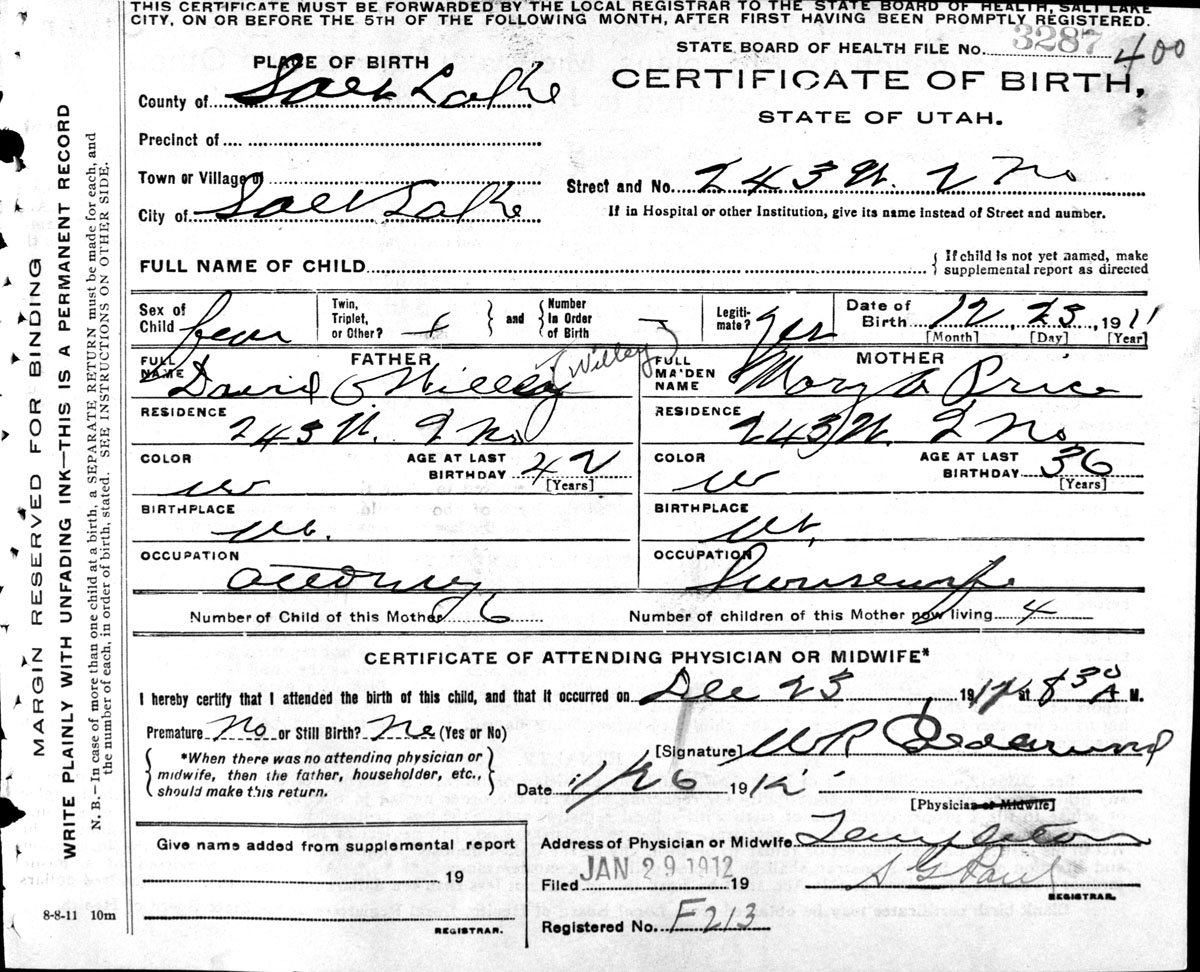 THIS CERTIFICATE MUST BE FORWARDED BY THE LOCAL REGISTRAR TO THE STATE BOARD OF HEALTH, SALT LAKE
CITY, ON OR BEFORE THE 5TH OF THE FOLLOWING MONTH, AFTER FIRST HAVING BEEN PROMPTLY REGISTERED.
STATE BOARD OF HEALTH FILE No. 3287 400
PLACE OF BIRTH
CERTIFICATE OF BIRTH,
STATE OF UTAH.
County of Salt Lake
Precinct of
Town or Village of
City of Salt Lake
Street and No. 243 W. 2 No
If in Hospital or other Institution, give its name instead of Street and number.
FULL NAME OF CHILD
{ If child is not yet named, make
supplemental report as directed
Sex of Child fem
Twin, Triplet, or Other? } and { Number in Order of Birth
Legiti-mate? Yes
Date of Birth 12, 23, 1911
[Month] [Day] [Year]
FATHER
FULL NAME David O Willey (Willey)
RESIDENCE 243 W. 2 No
COLOR w
AGE AT LAST BIRTHDAY 42 [Years]
BIRTHPLACE Ut.
OCCUPATION attorney
MOTHER
FULL MAIDEN NAME Mary A Price
RESIDENCE 243 W. 2 No
COLOR w
AGE AT LAST BIRTHDAY 36 [Years]
BIRTHPLACE Ut.
OCCUPATION Housewife
Number of Child of this Mother 6 Number of children of this Mother now living 4
CERTIFICATE OF ATTENDING PHYSICIAN OR MIDWIFE*
I hereby certify that I attended the birth of this child, and that it occurred on Dec 23 191 at 8 30 A. M.
Premature No or Still Birth? No (Yes or No)
*When there was no attending physician or
midwife, then the father, householder, etc.,
should make this return.
[Signature] W R
Date 1/26 1912
[Physician or Midwife]
Give name added from supplemental report
19
REGISTRAR.
8-8-11 10m
Address of Physician or Midwife
Filed JAN 29 1912 19 S G Paul
REGISTRAR.
Registered No. F213
MARGIN RESERVED FOR BINDING
WRITE PLAINLY WITH UNFADING INK—THIS IS A PERMANENT RECORD
N. B.—In case of more than one child at a birth, a SEPARATE RETURN must be made for each, and
the number of each, in order of birth, stated. SEE INSTRUCTIONS ON OTHER SIDE.